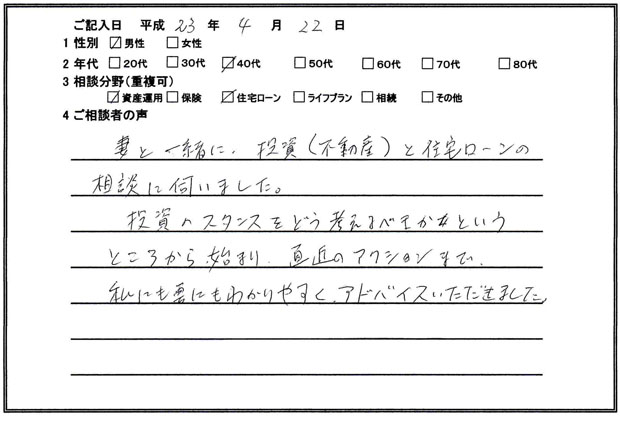 ご記入日 平成 23 年 4 月 22 日
1 性別 ☑男性 □女性
2 年代 □20代 □30代 ☑40代 □50代 □60代 □70代 □80代
3 相談分野(重複可)
☑資産運用 □保険 ☑住宅ローン □ライフプラン □相続 □その他
4 ご相談者の声
妻と一緒に、投資(不動産)と住宅ローンの
相談に伺いました。
投資のスタンスをどう考えるべきかなという
ところから始まり、直近のアクションまで、
私にも妻にもわかりやすく、アドバイスいただきました。